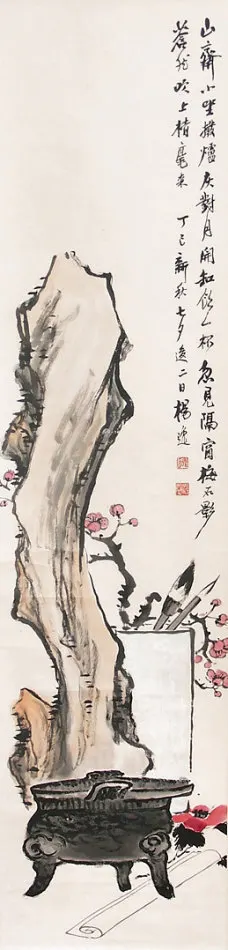 山齋小坐撥爐灰對月開缸飲一杯忽見隔窗梅石影
蒼然吹上楮毫來 丁巳新秋七夕後二日楊逸